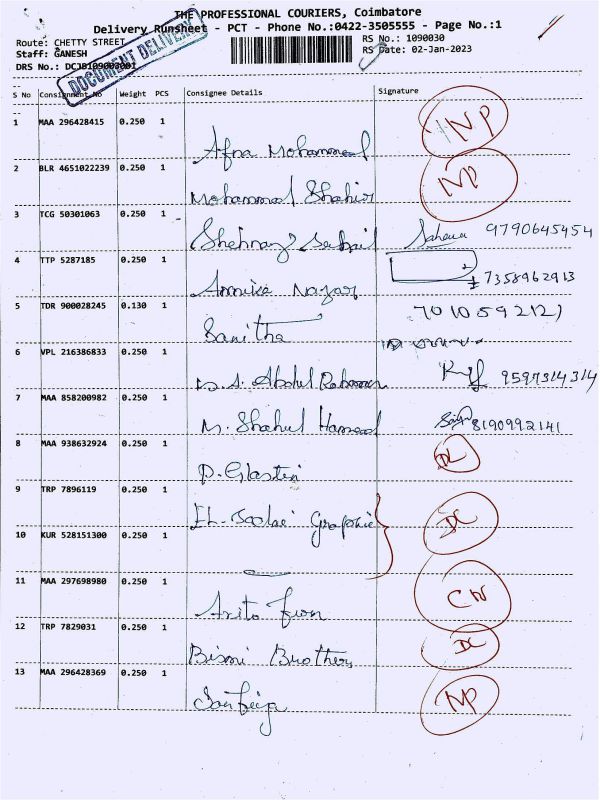 THE PROFESSIONAL COURIERS, Coimbatore
Delivery Runsheet - PCT - Phone No.:0422-3505555 - Page No.:1
Route: CHETTY STREET
RS No.: 1090030
Staff: GANESH
RS Date: 02-Jan-2023
DRS No.: DCJB109003001
DOCUMENT DELIVERY
S No Consignment No Weight PCS Consignee Details Signature
1 MAA 296428415 0.250 1 Afra Mohammed NP
2 BLR 4651022239 0.250 1 Mohammed Shahir NP
3 TCG 50301063 0.250 1 9790645454
4 TTP 5287185 0.250 1 Annika Nazar 7358962913
5 TDR 900028245 0.130 1 Sanitha 7010592127
6 VPL 216386833 0.250 1 Abdul Rahman 9597314314
7 MAA 858200982 0.250 1 M. Shahul Hameed 8190992141
8 MAA 938632924 0.250 1 DL
9 TRP 7896119 0.250 1 Graphic DC
10 KUR 528151300 0.250 1
11 MAA 297698980 0.250 1 CN
12 TRP 7829031 0.250 1 Bismi Brothers DC
13 MAA 296428369 0.250 1 NP